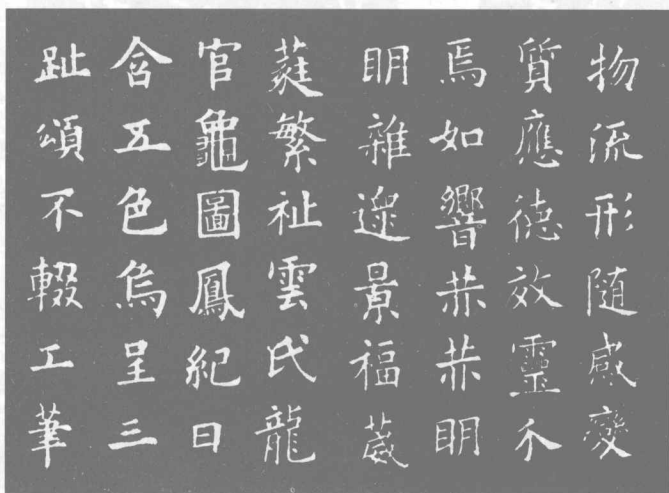 物流形隨感變
質應德效靈介
焉如響赫赫明
明雜遝景福葳
蕤繁祉雲氏龍
官龜圖鳳紀日
含五色烏呈三
趾頌不輟工筆